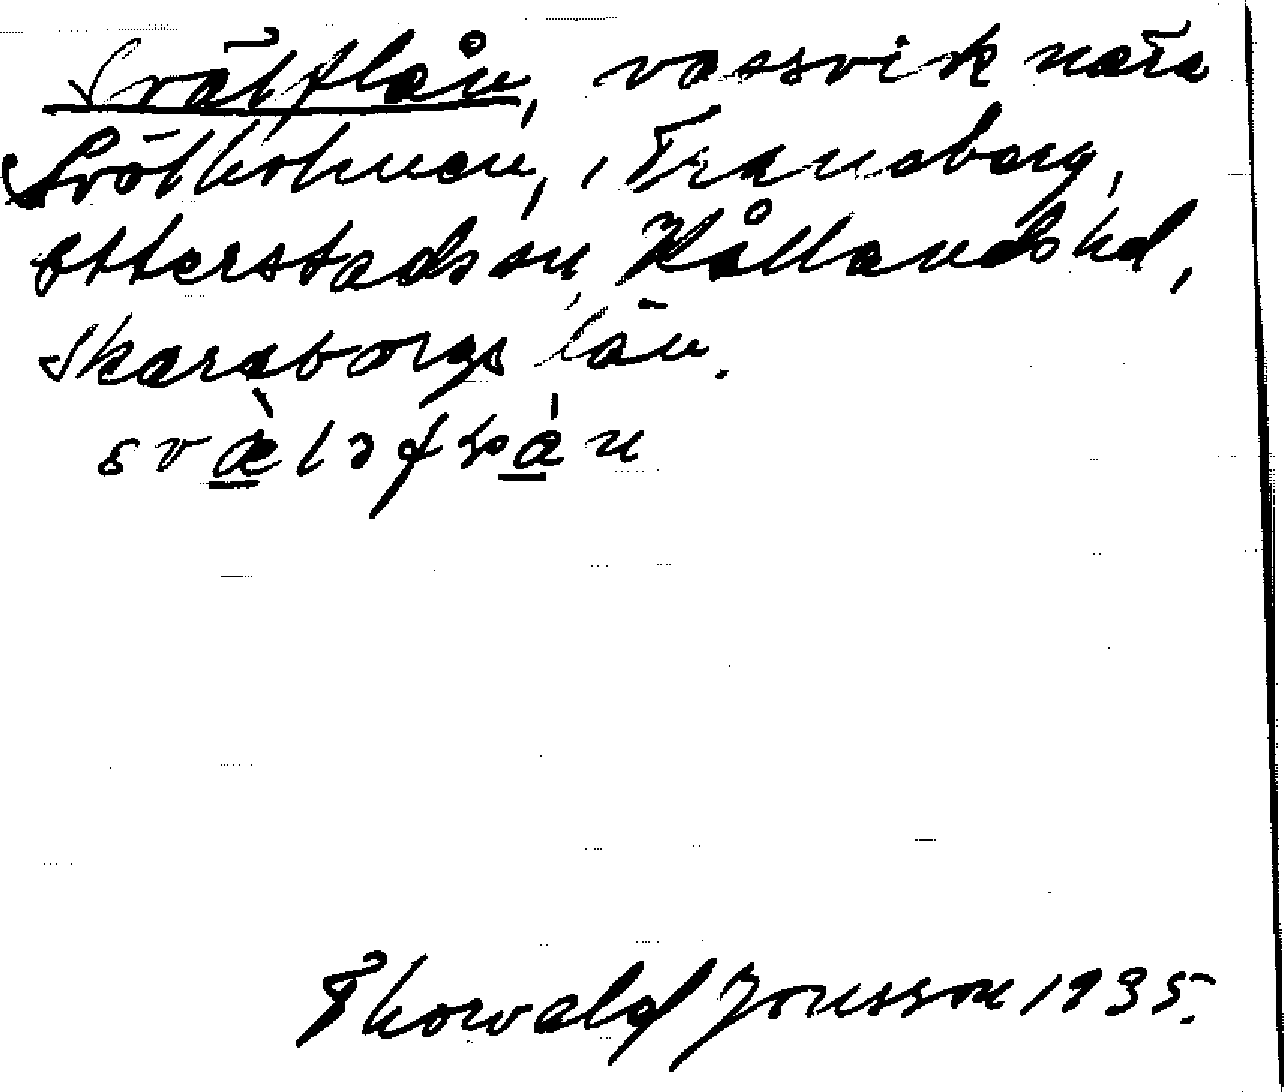 Svälflån, vassvik nära
Svölholmen, i Traneberg,
Otterstads sn, Kållands hd,
Skaraborgs län.
Thorvald Jonsson 1935.